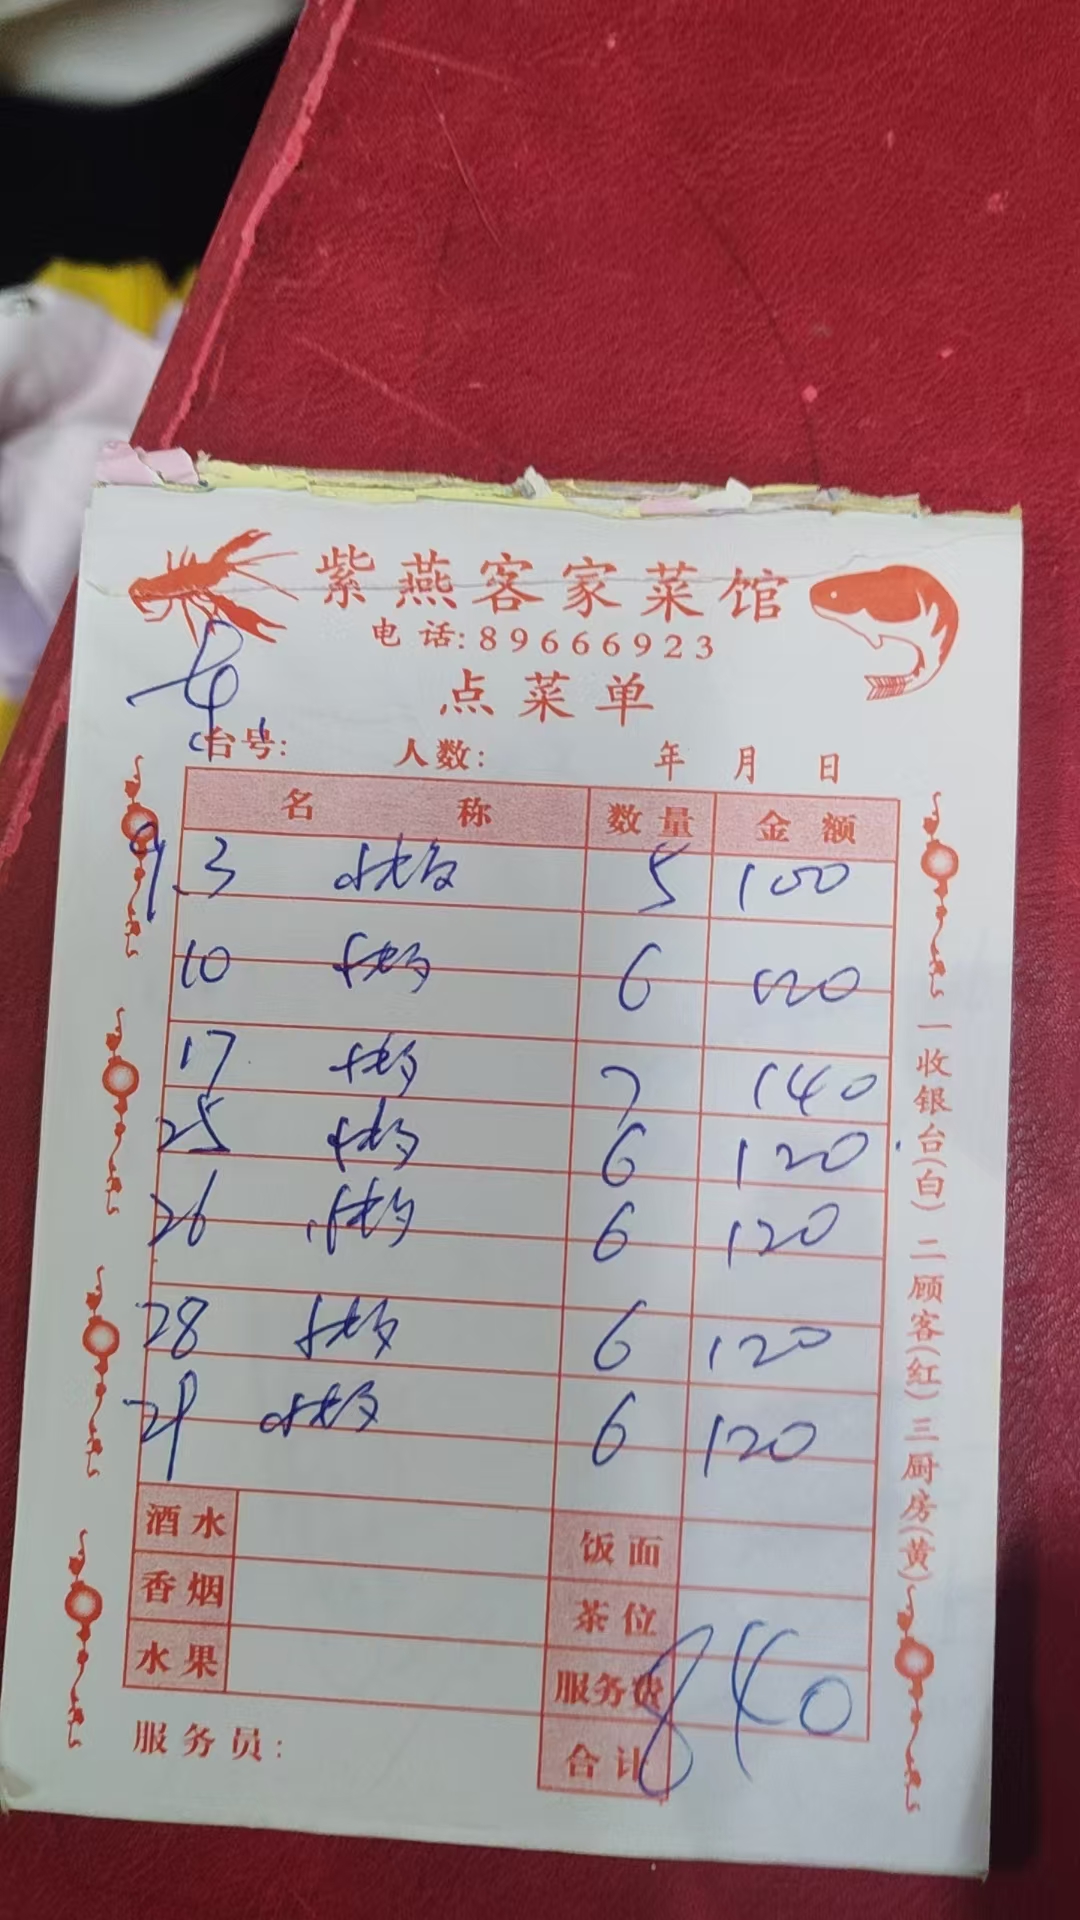 紫燕客家菜馆
电话:89666923
点菜单
台号: 人数: 年 月 日
名 称 数量 金额
9.3 快歺 5 100
10 快歺 6 120
17 快歺 7 140
25 快歺 6 120
26 快歺 6 120
28 快歺 6 120
29 快歺 6 120
酒水 饭面
香烟 茶位
水果 服务费
840
服务员: 合计
一收银台(白) 二顾客(红) 三厨房(黄)